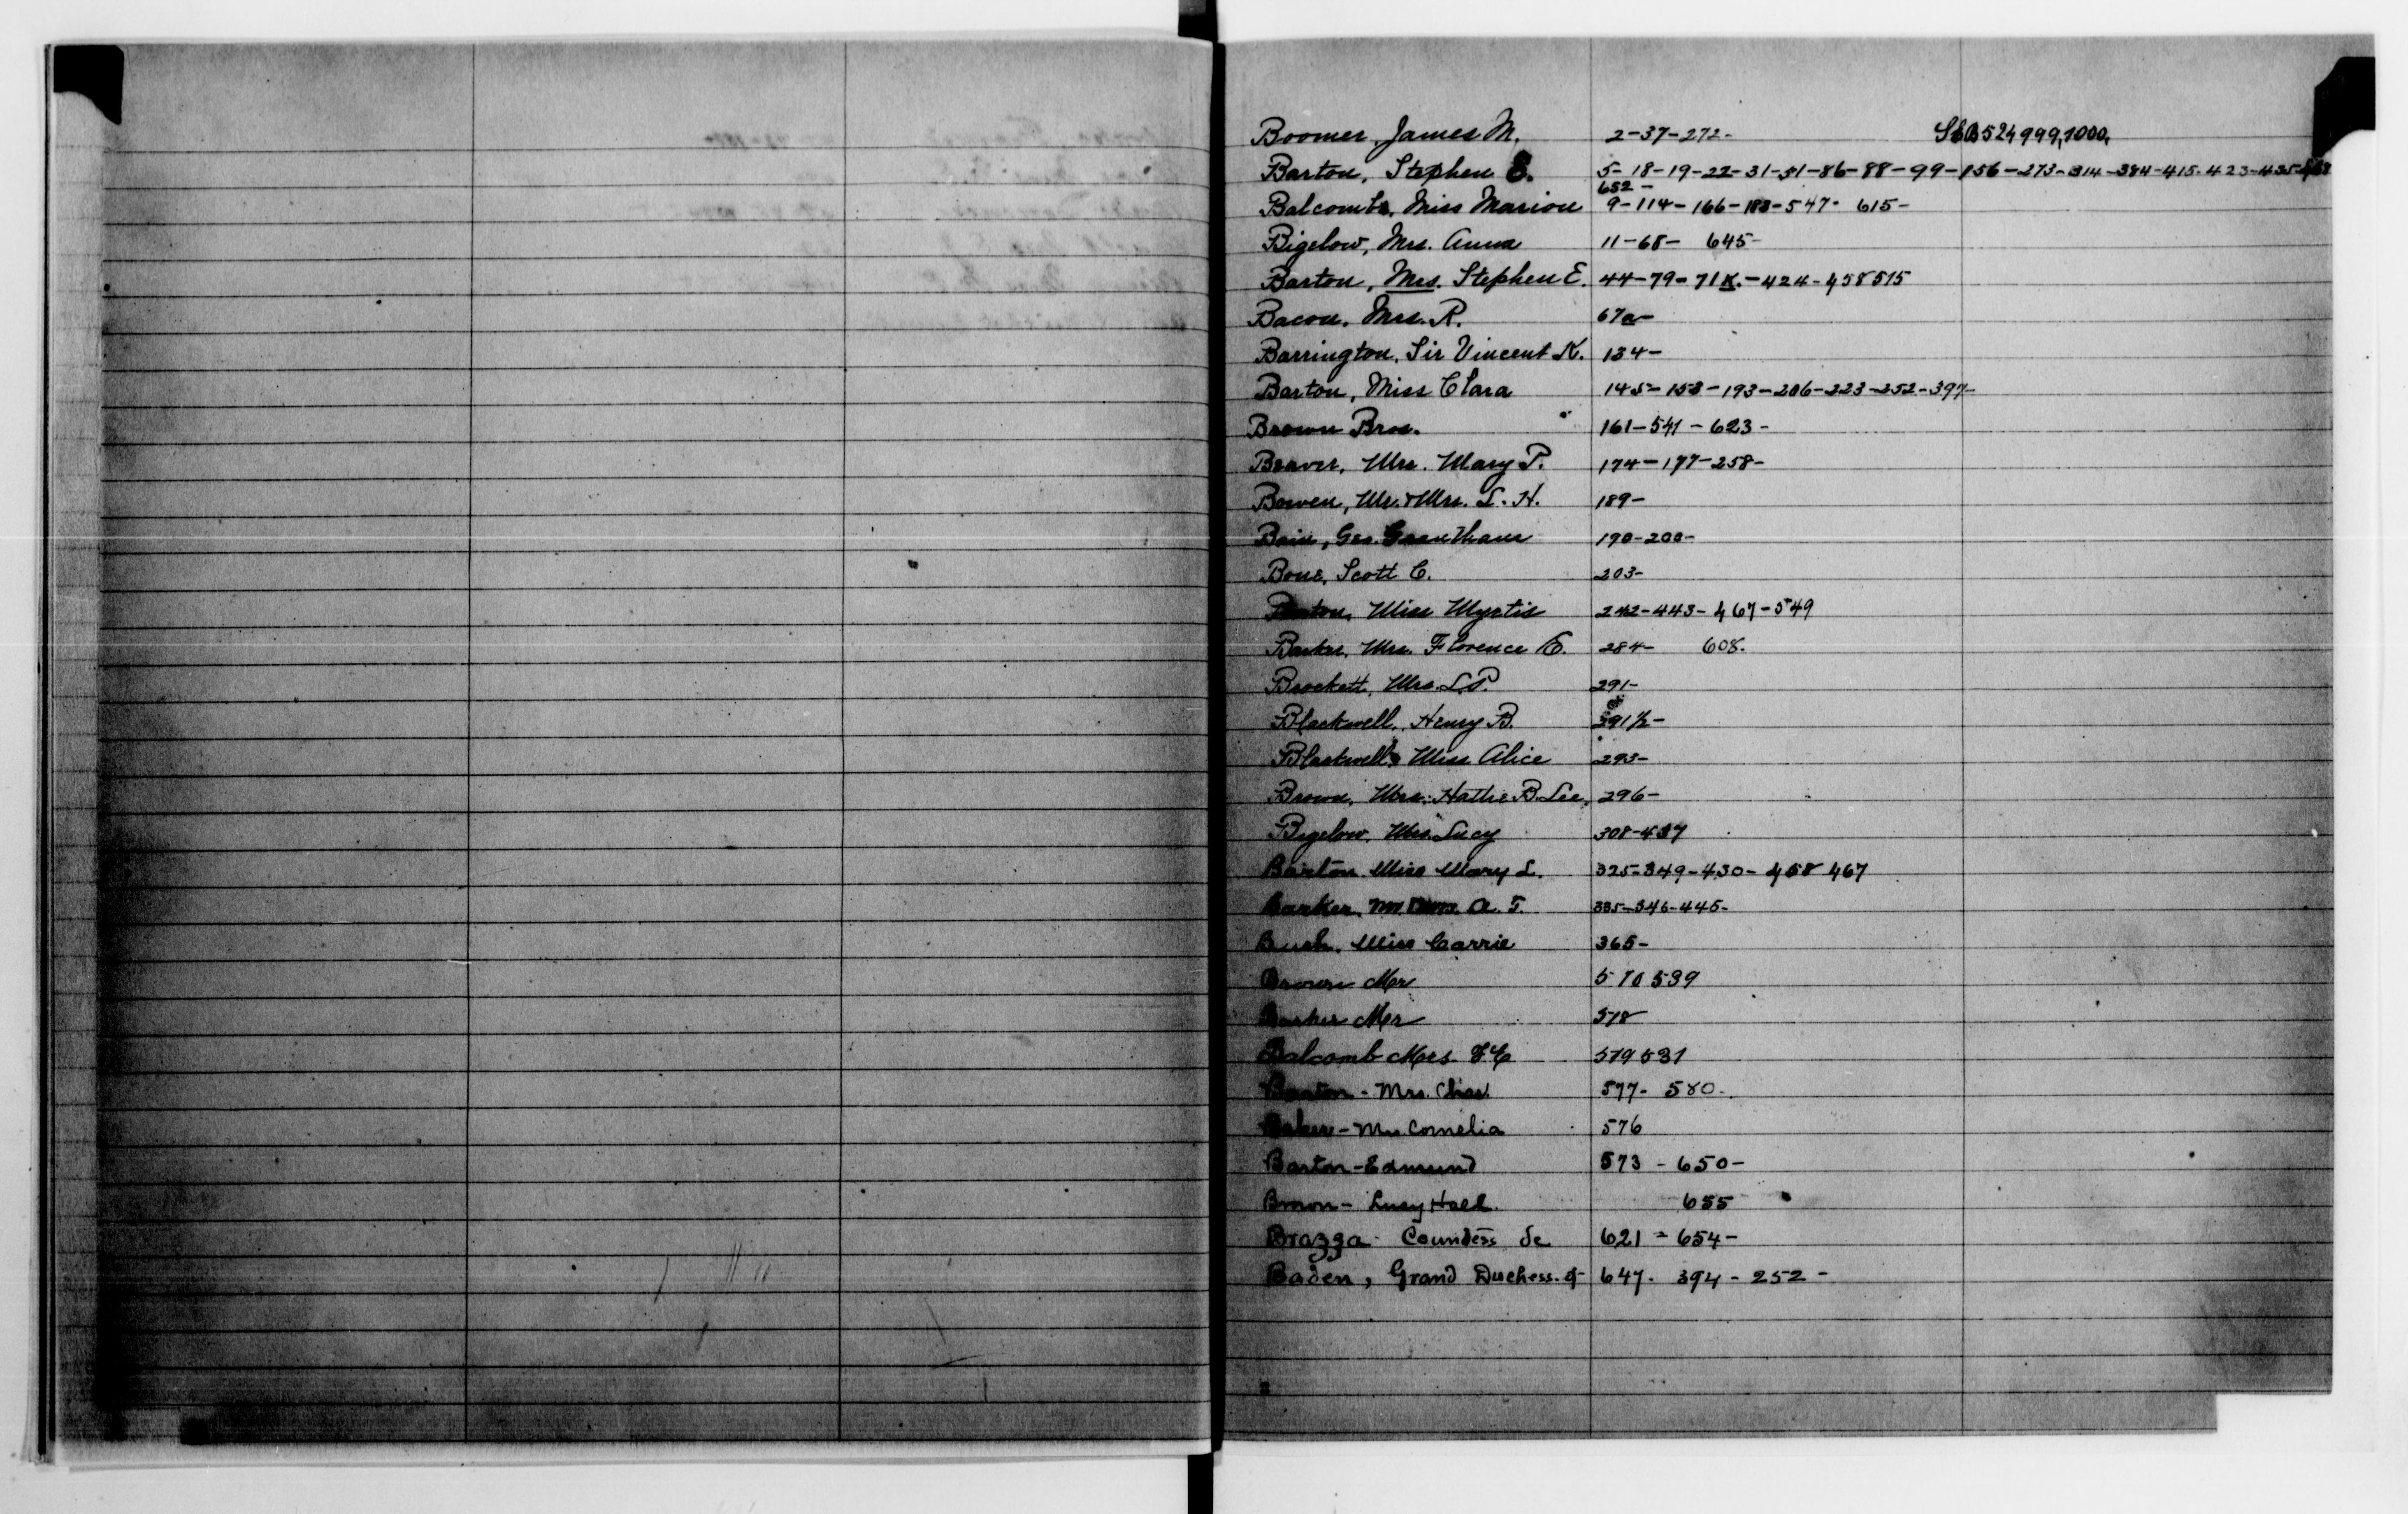 Boomer, James M. 2-37-272-
Barton, Stephen E. 5-18-19-22-31-51-86-88-99-156-273-314-384-415-423-435-
652-
Balcomb, Miss Marion 9-114-166-183-547- 615-
Bigelow, Mrs. Anna 11-68- 645-
Barton, Mrs. Stephen E. 44-79-71K.-424-458 515
Bacon, Mrs. R. 67a-
Barrington, Sir Vincent K. 134-
Barton, Miss Clara 145-153-193-206-223-252-397-
Brown Bros. 161-541-623-
Beaver, Mrs. Mary P. 174-177-258-
Bowen, Mr. & Mrs. L. H. 189-
Bain, Geo. Grantham 190-200-
Bone, Scott C. 203-
Barton, Miss Myrtis 242-443-467-549
Barker, Mrs. Florence E. 284- 608-
Brockett, Mrs. L.P. 291-
Blackwell, Henry B. 291½-
Blackwell, Miss Alice 293-
Brown, Mrs. Hattie B. Lee, 296-
Bigelow, Mrs. Lucy 308-437
Barton, Miss Mary L. 325-349-430-458 467
Barker, A. T. 335-346-445-
Bush, Miss Carrie 365-
Brown Mr 510 539
Barker Mr 518
Balcomb Mrs 519 531
Barton - Mrs. Chas. 577- 580-
Mrs. Cornelia 576
Barton - Edmund 573 - 650-
Brown - Lucy Hall. 655
Brazza - Countess de 621 - 654-
Baden, Grand Duchess of 647- 394-252-